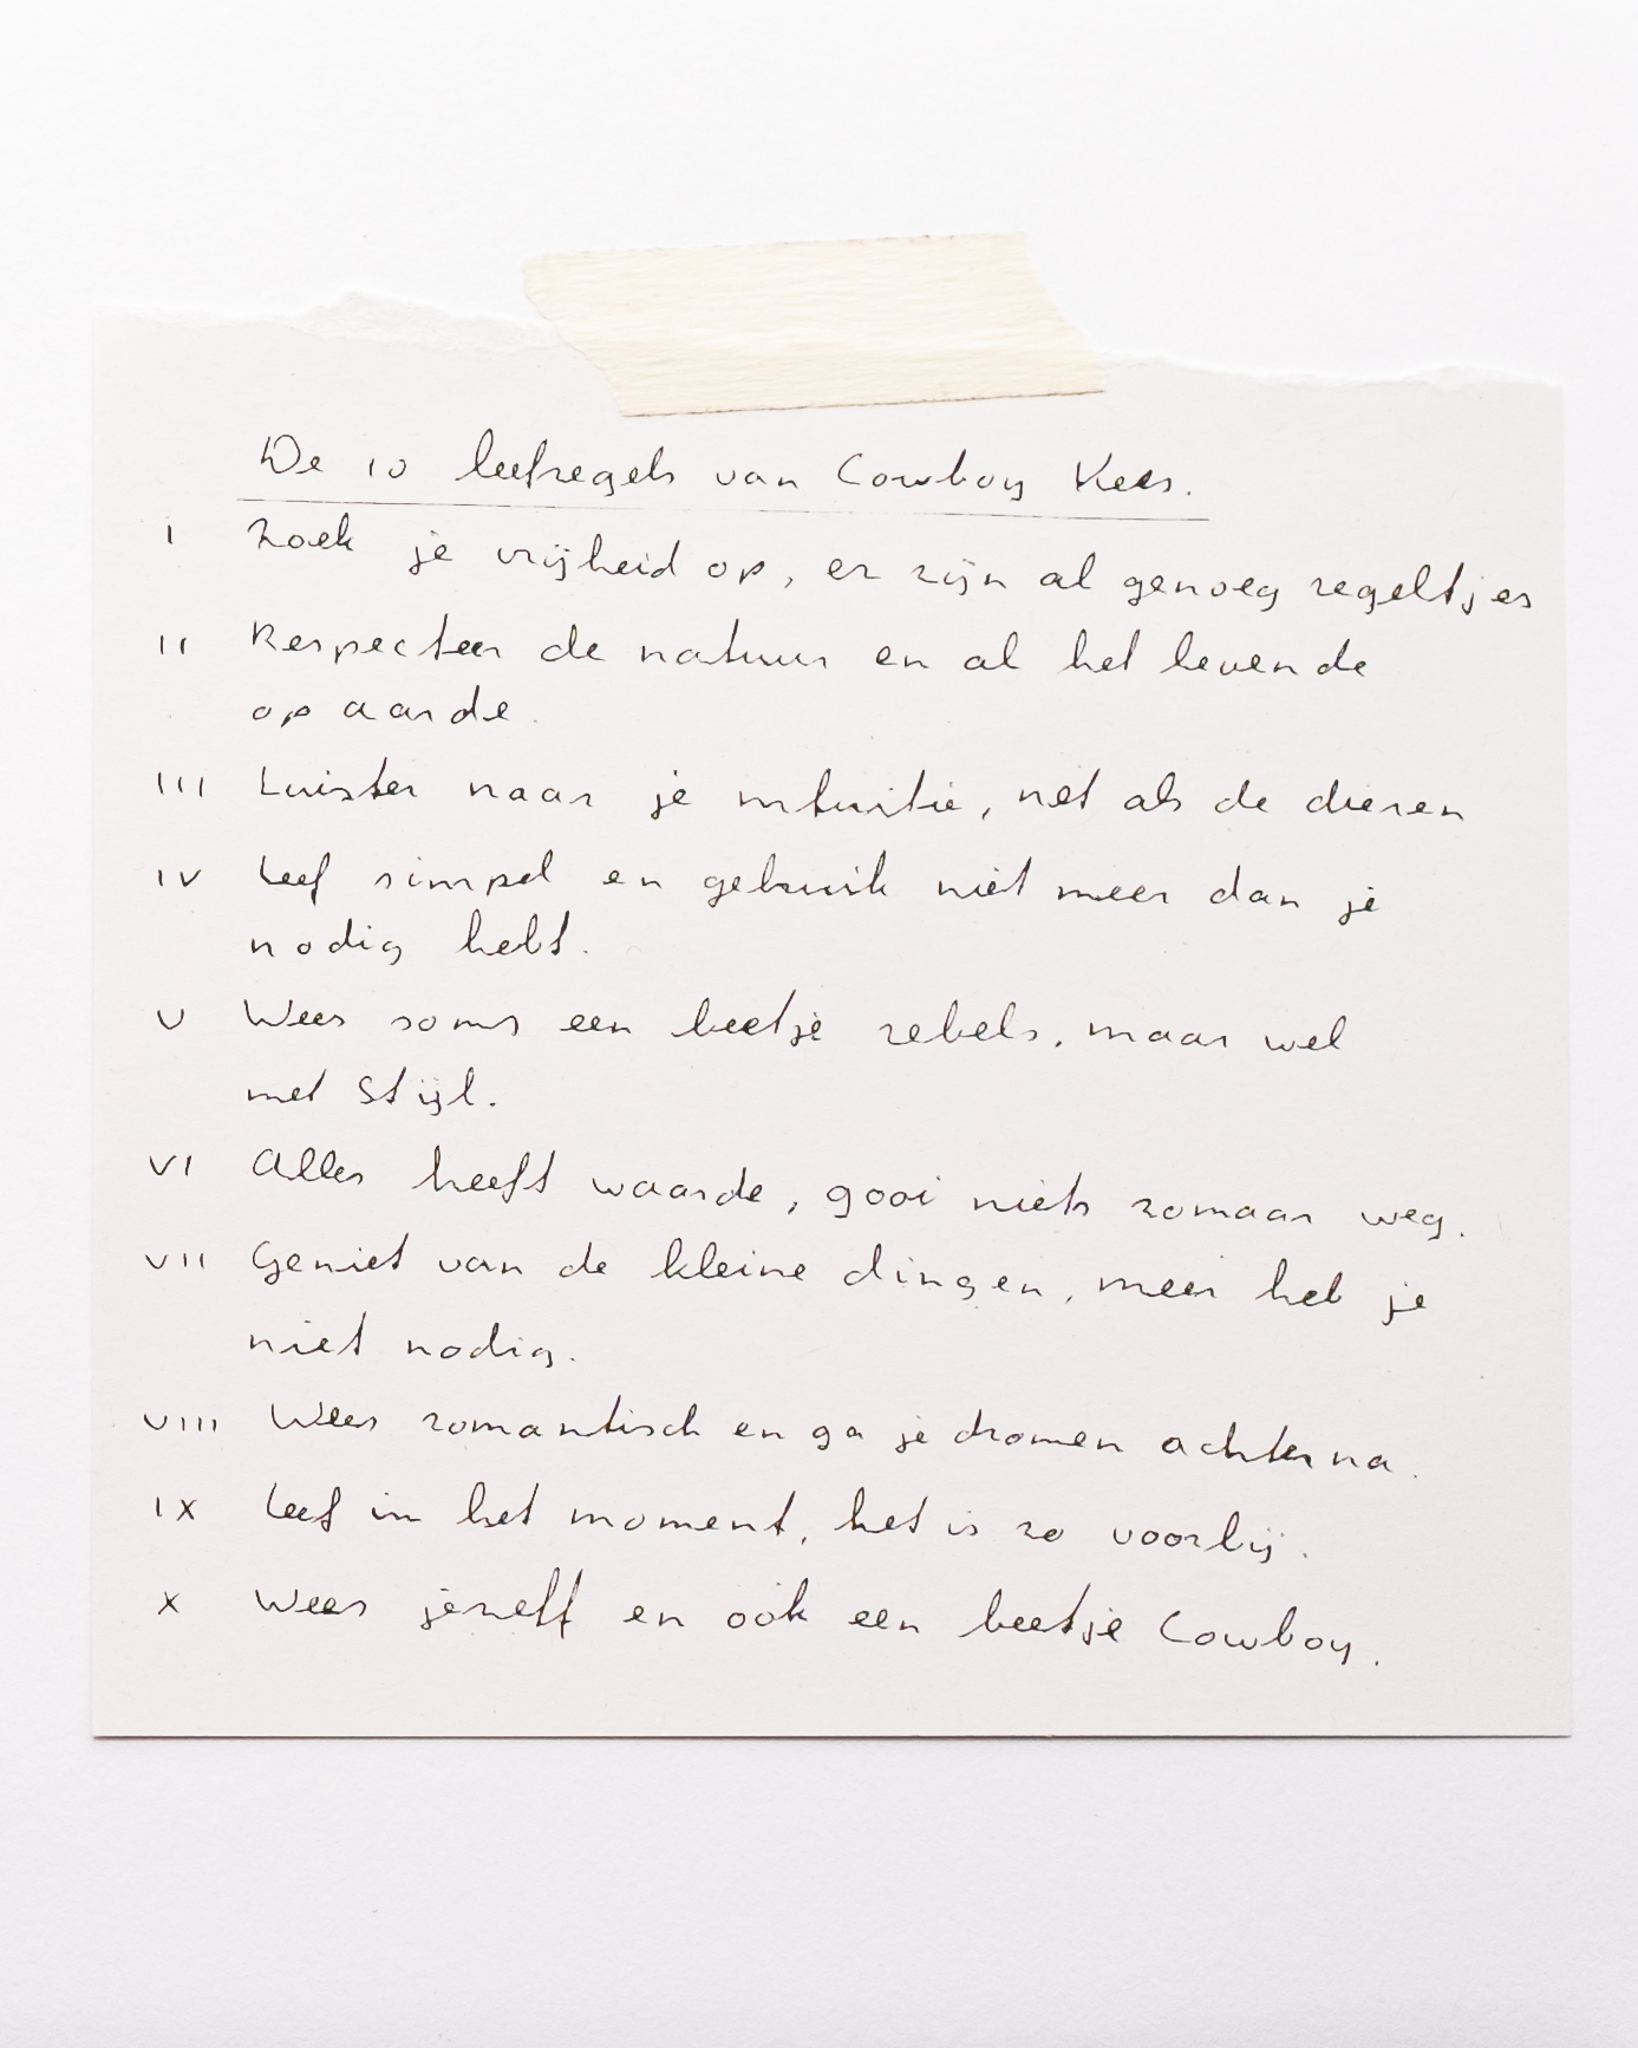 De 10 leefregels van Cowboy Kees.
I Zoek je vrijheid op, er zijn al genoeg regeltjes
II Respecteer de natuur en al het levende
op aarde.
III Luister naar je intuitie, net als de dieren
IV Leef simpel en gebruik niet meer dan je
nodig hebt.
V Wees soms een beetje rebels, maar wel
met stijl.
VI Alles heeft waarde, gooi niets zomaar weg.
VII Geniet van de kleine dingen, meer heb je
niet nodig.
VIII Wees romantisch en ga je dromen achterna.
IX Leef in het moment, het is zo voorbij.
X Wees jezelf en ook een beetje Cowboy.